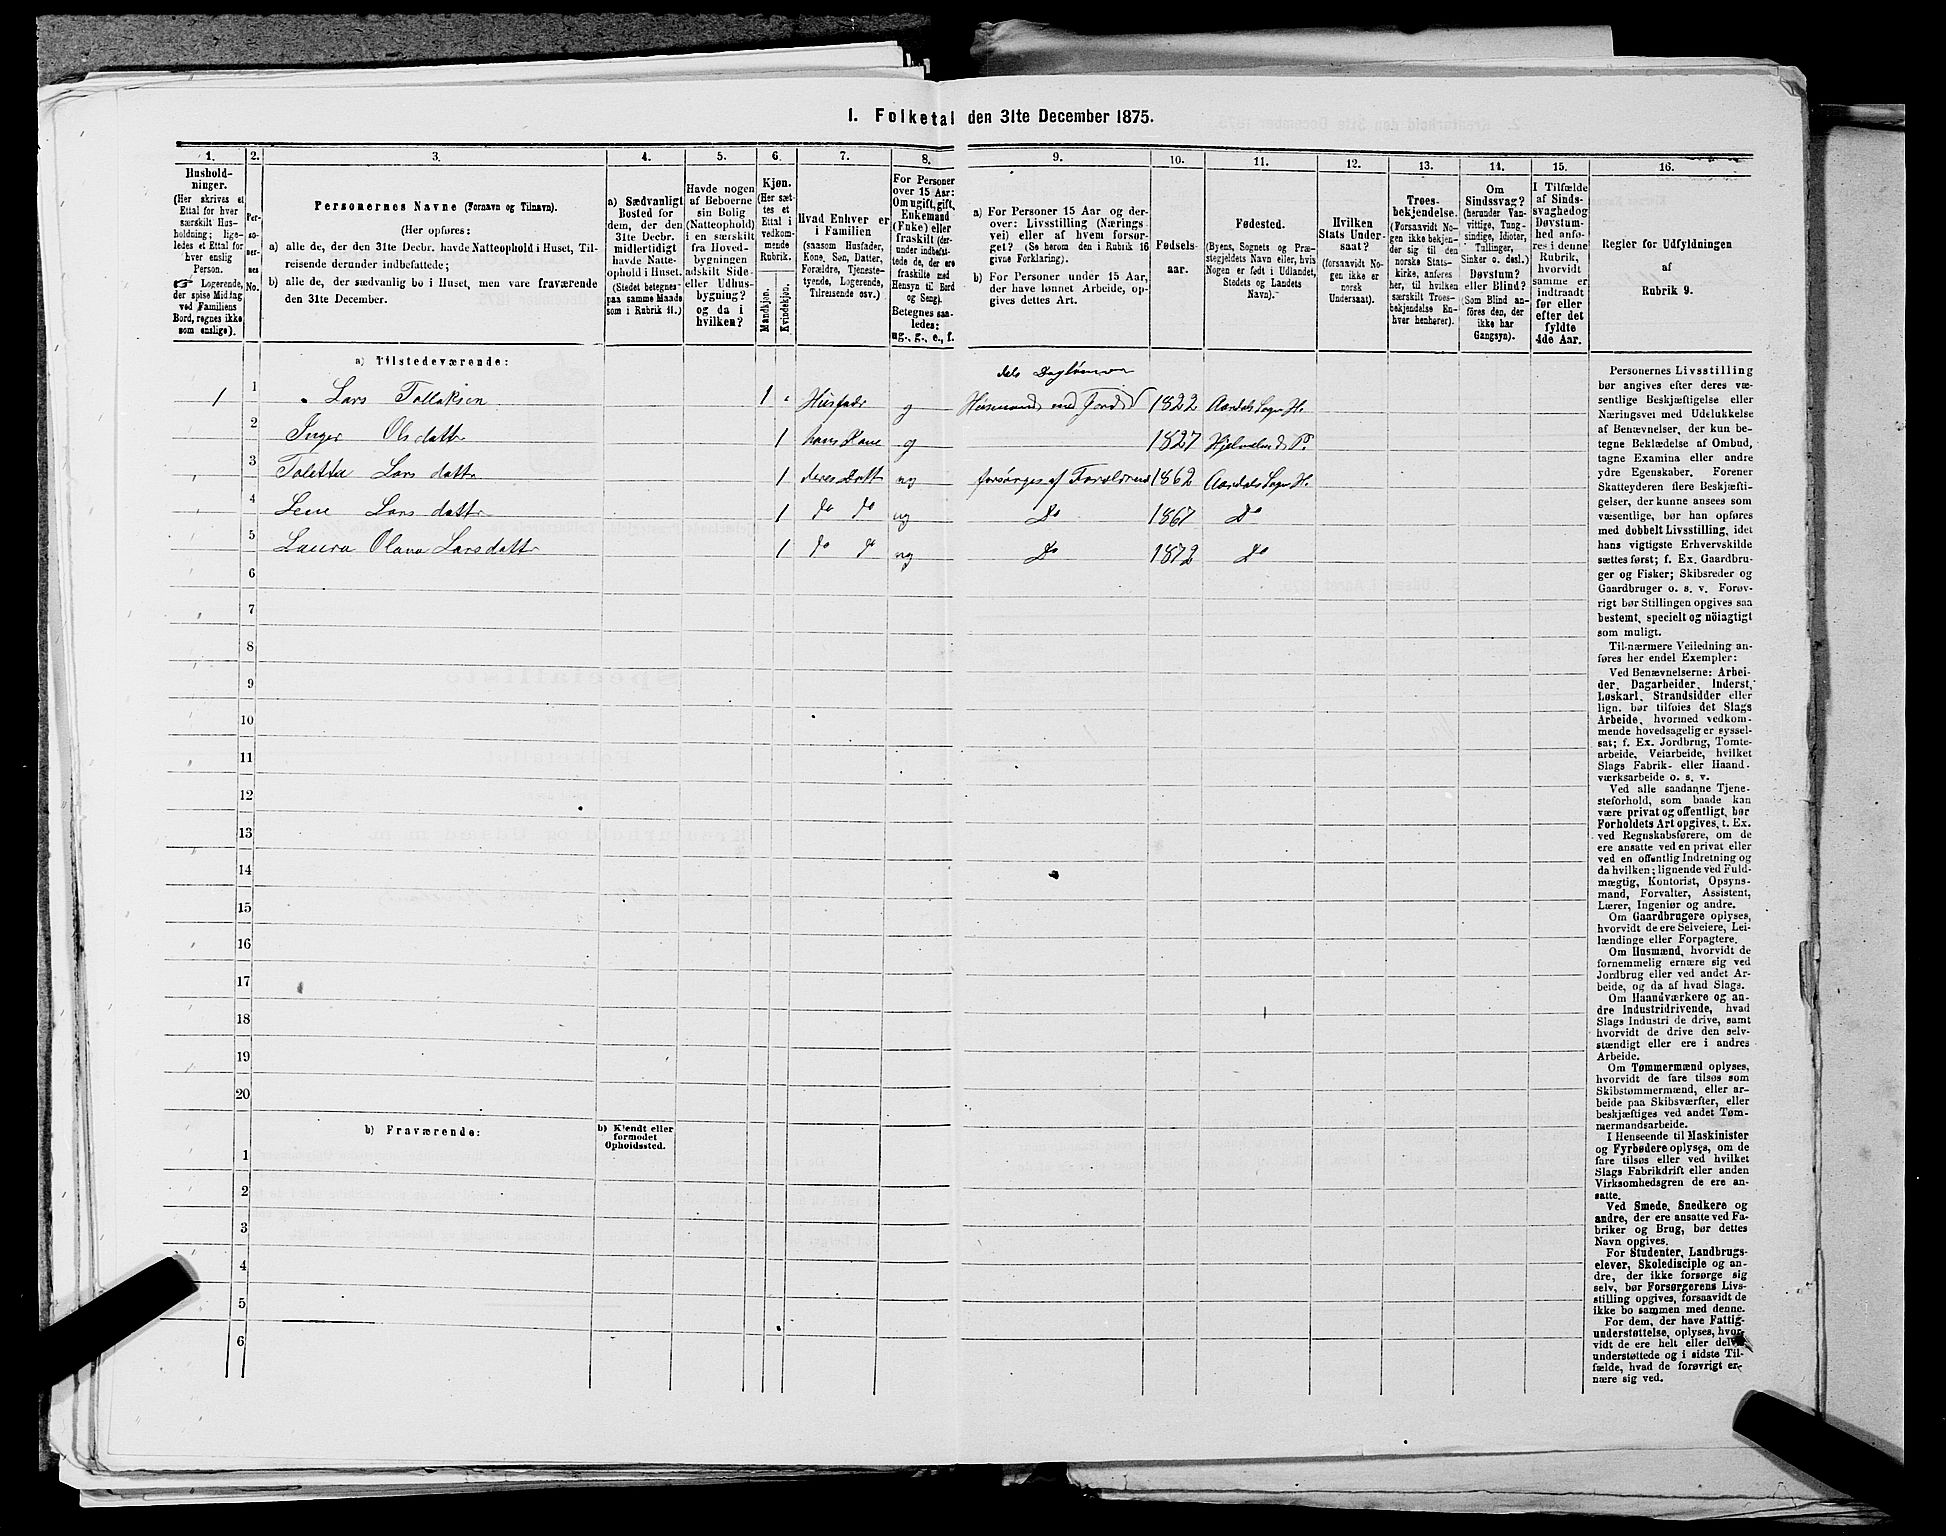 1. Folketal den 31te December 1875.
1.
Hushold-
ninger.
(Her skrives et
Ettal for hver
særskilt Hus-
holdning; lige-
ledes et Ettal for
hver enslig
Person.
☞ Logerende,
der spise Middag
ved Familiens
Bord, regnes ikke
som enslige).
2.
Per-
so-
ner-
nes
No.
3.
Personernes Navne (Fornavn og Tilnavn).
(Her opføres:
a) alle de, der den 31te Decbr. havde Natteophold i Huset, Til-
reisende derunder indbefattede;
b) alle de, der sædvanlig bo i Huset, men vare fraværende
den 31te December.
4.
a) Sædvanligt
Bosted for
dem, der den
31te Decbr.
midlertidigt
havde Natte-
ophold i Huset.
(Stedet betegnes
paa samme Maade
som i Rubrik 11.)
5.
Havde nogen
af Beboerne
sin Bolig
(Natteophold)
i en særskilt
fra Hoved-
bygningen
adskilt Side-
eller Udhus-
bygning?
og da i
hvilken?
6.
Kjøn.
(Her sæt-
tes et
Ettal i
vedkom-
mende
Rubrik.
Mandkjøn.
Kvindekjøn.
7.
Hvad Enhver er
i Familien
(saasom Husfader,
Kone, Søn, Datter,
Forældre, Tjeneste-
tyende, Logerende,
Tilreisende osv.)
8.
For Personer
over 15 Aar:
Om ugift, gift,
Enkemand
(Enke) eller
fraskilt (der-
under indbefat-
tede de, der ere
fraskilte med
Hensyn til Bord
og Seng).
Betegnes saa-
ledes:
ug., g., e., f.
9.
a) For Personer 15 Aar og der-
over: Livsstilling (Nærings-
vei) eller af hvem forsør-
get? (Se herom den i Rubrik 16
givne Forklaring).
b) For Personer under 15 Aar,
der have lønnet Arbeide, op-
gives dettes Art.
10.
Fødsels-
aar.
11.
Fødested.
(Byens, Sognets og Præ-
stegjeldets Navn eller, hvis
Nogen er født i Udlandet,
Stedets og Landets
Navn).
12.
Hvilken
Stats Under-
saat?
(forsaavidt No-
gen ikke er
norsk
Undersaat).
13.
Troes-
bekjendelse.
(Forsaavidt No-
gen ikke bekjen-
der sig til den
norske Stats-
kirke, anføres
her, til hvilken
særskilt Troes-
bekjendelse En-
hver henhører).
14.
Om
Sindssvag?
(herunder Van-
vittige, Tung-
sindige, Idioter,
Tullinger,
Sinker o. desl.)
Døvstum?
eller Blind?
(Som Blind an-
føres den, der
ikke har
Gangsyn).
15.
I Tilfælde
af Sinds-
svaghed og
Døvstum-
hed anfø-
res i denne
Rubrik,
hvorvidt
samme er
indtraadt
før eller
efter det
fyldte
4de Aar.
16.
Regler for Udfyldningen
af
Rubrik 9.
a) Tilstedeværende:
dels
1 1 Lars Tollaksen 1 Husfadr g Husmand med Jord 1822 Aardals Sogn H.
2 Inger Olsdattr 1 hans Kone g 1827
3 Toletta Larsdattr 1 deres Datt ug forsørges af Forældrene 1862 Aardals Sogn H.
4 Lene Larsdattr 1 do do ug Do 1867 Do
5 Laura Olava Larsdattr 1 do do ug Do 1872 Do
6
7
8
9
10
11
12
13
14
15
16
17
18
19
20
b) Fraværende:
b) Kjendt eller
formodet
Opholdssted.
1
2
3
4
5
6
Personernes Livsstilling
bør angives efter deres væ-
sentlige Beskjæftigelse eller
Næringsvei med Udelukkelse
af Benævnelser, der kun be-
tegne Beklædelse af Ombud,
tagne Examina eller andre
ydre Egenskaber. Forener
Skatteyderen flere Beskjæfti-
gelser, der kunne ansees som
væsentlige, bør han opføres
med dobbelt Livsstilling, idet
hans vigtigste Erhvervskilde
sættes først; f. Ex. Gaardbru-
ger og Fisker; Skibsreder og
Gaardbruger o. s. v. Forøv-
rigt bør Stillingen opgives saa
bestemt, specielt og nöiagtigt
som muligt.
Til nærmere Veiledning an-
føres her endel Exempler:
Ved Benævnelserne: Arbei-
der, Dagarbeider, Inderst,
Løskarl, Strandsidder eller
lign. bør tilføies det Slags
Arbeide, hvormed vedkom-
mende hovedsagelig er syssel-
sat; f. Ex. Jordbrug, Tomte-
arbeide, Veiarbeide, hvilket
Slags Fabrik- eller Haand-
værksarbeide o. s. v.
Ved alle saadanne Tjene-
steforhold, som baade kan
være privat og offentligt, bør
Forholdets Art opgives, t. Ex.
ved Regnskabsførere, om de
ere ansatte ved en privat eller
ved en offentlig Indretning og
da hvilken; lignende ved Fuld-
mægtig, Kontorist, Opsyns-
mand, Forvalter, Assistent,
Lærer, Ingeniør og andre.
Om Gaardbrugere oplyses,
hvorvidt de ere Selveiere, Lei-
lændinge eller Forpagtere.
Om Husmænd, hvorvidt de
fornemmelig ernære sig ved
Jordbrug eller ved andet Ar-
beide, og da af hvad Slags.
Om Haandværkere og an-
dre Industridrivende, hvad
Slags Industri de drive, samt
hvorvidt de drive den selv-
stændigt eller ere i andres
Arbeide.
Om Tømmermænd oplyses,
hvorvidt de fare tilsøs som
Skibstømmermænd, eller ar-
beide paa Skibsværfter, eller
beskjæftiges ved andet Tøm-
mermandsarbeide.
I Henseende til Maskinister
og Fyrbødere oplyses, om de
fare tilsøs eller ved hvilket
Slags Fabrikdrift eller anden
Virksomhedsgren de ere an-
satte.
Ved Smede, Snedkere og
andre, der ere ansatte ved Fa-
briker og Brug, bør dettes
Navn opgives.
For Studenter, Landbrugs-
elever, Skoledisciple og an-
dre, der ikke forsørge sig
selv, bør Forsørgerens Livs-
stilling opgives, forsaavidt de
ikke bo sammen med denne.
For dem, der have Fattig-
understøttelse, oplyses, hvor-
vidt de ere helt eller delvis
understøttede og i sidste Til-
fælde, hvad de forøvrigt er-
nære sig ved.